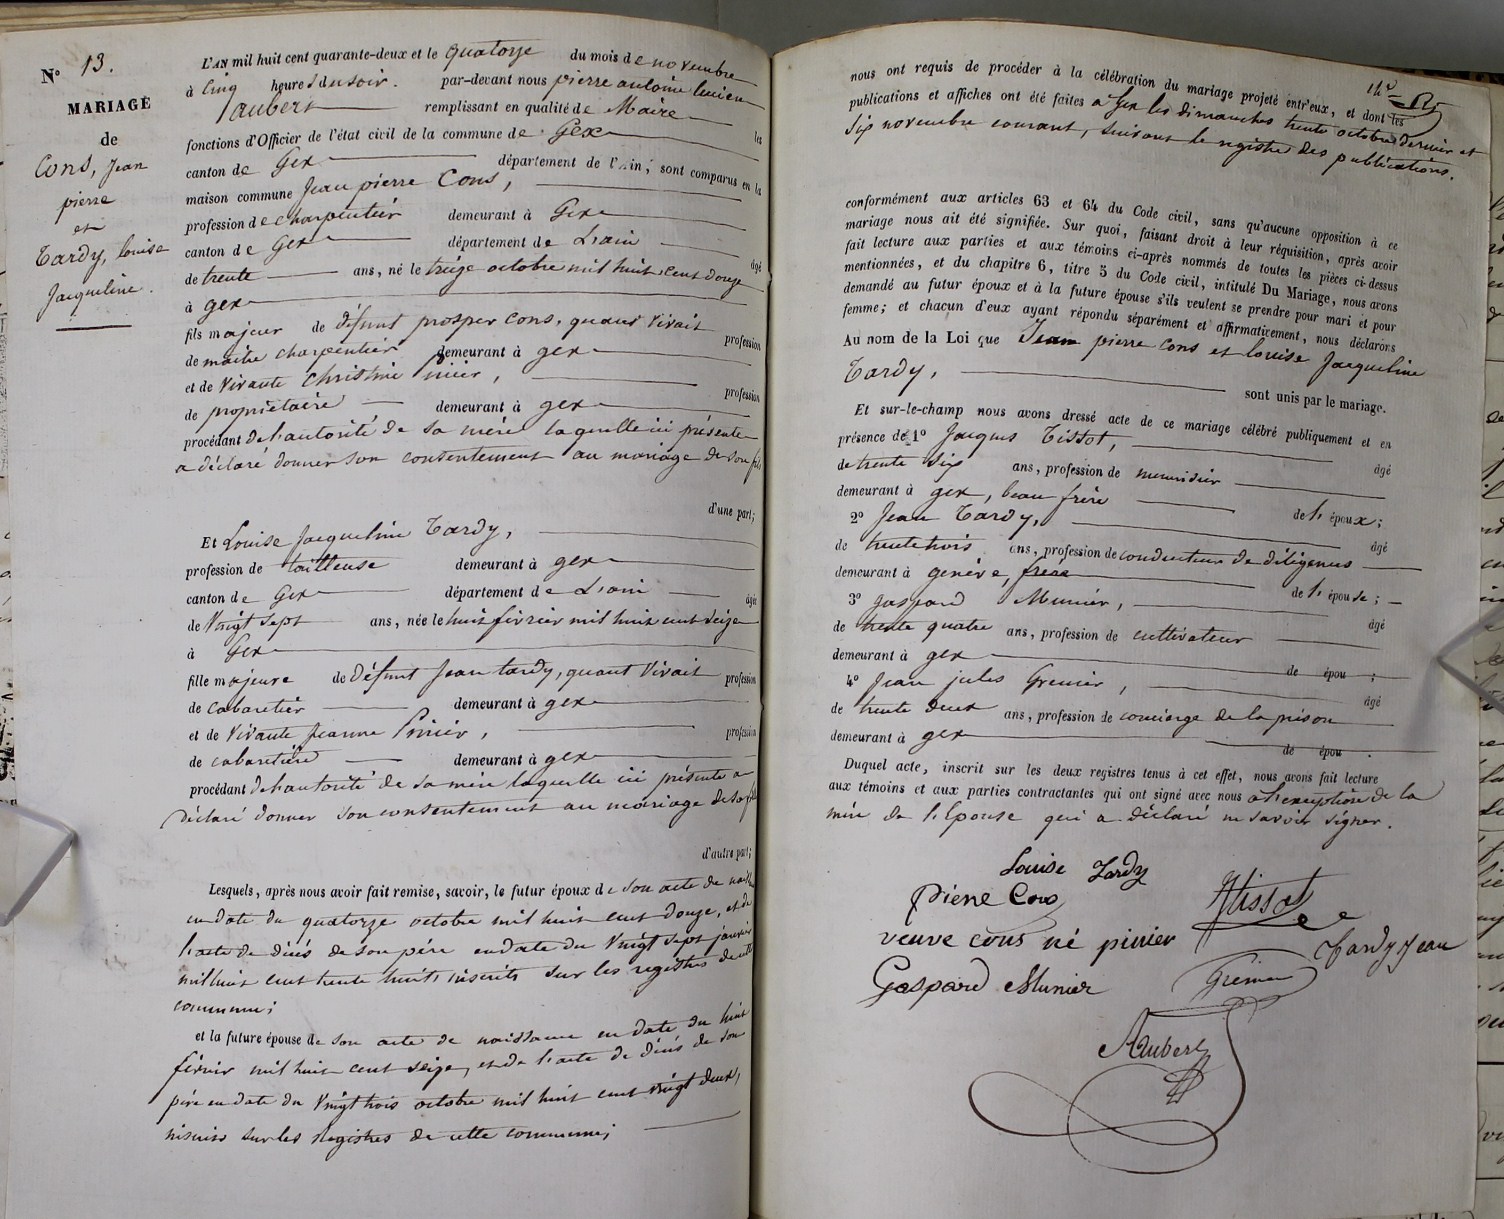 N° 13.
MARIAGE
de
Cons, Jean
pierre
et
Tardy, louise
Jacqueline.
L'AN mil huit cent quarante-deux et le quatorze du mois de novembre
à Cinq heures du soir. par-devant nous pierre antoine lucien
Jaubert remplissant en qualité de Maire les
fonctions d'Officier de l'état civil de la commune de Gex
canton de Gex département de l'Ain; sont comparus en la
maison commune Jean pierre Cons,
profession de charpentier demeurant à Gex
canton de Gex département de L'ain
âgé
de trente ans, né le treize octobre mil huit cent douze
à gex
fils majeur de défunt prosper Cons, quand vivait profession
de maitre charpentier demeurant à gex
et de vivante Christine pinier, profession
de propriétaire demeurant à gex
procédant de l'autorité de sa mère laquelle ici présente
a déclaré donner son consentement au mariage de son fils
d'une part;
Et Louise Jacqueline Tardy,
profession de tailleuse demeurant à gex
canton de Gex département de L'ain âgé
de Vingt sept ans, née le huit février mil huit cent seize
à Gex
fille majeure de défunt Jean tardy, quand vivait profession
de cabaretier demeurant à gex
et de vivante Jeanne Pinier, profession
de cabaretière demeurant à gex
procédant de l'autorité de sa mère laquelle ici présente a
déclaré donner son consentement au mariage de sa fille
d'autre part;
Lesquels, après nous avoir fait remise, savoir, le futur époux de son acte de naissance
en date du quatorze octobre mil huit cent douze, et de
l'acte de décès de son père en date du Vingt sept janvier
mil huit cent trente huit inscrits sur les registres de cette
commune;
et la future épouse de son acte de naissance en date du huit
février mil huit cent seize, et de l'acte de décès de son
père en date du Vingt trois octobre mil huit cent vingt deux,
inscrits sur les registres de cette commune;
nous ont requis de procéder à la célébration du mariage projeté entr'eux, et dont les
publications et affiches ont été faites a Gex les dimanches trente octobre dernier et
six novembre courant, suivant le registre des publications.
conformément aux articles 63 et 64 du Code civil, sans qu'aucune opposition à ce
mariage nous ait été signifiée. Sur quoi, faisant droit à leur réquisition, après avoir
fait lecture aux parties et aux témoins ci-après nommés de toutes les pièces ci-dessus
mentionnées, et du chapitre 6, titre 5 du Code civil, intitulé Du Mariage, nous avons
demandé au futur époux et à la future épouse s'ils veulent se prendre pour mari et pour
femme; et chacun d'eux ayant répondu séparément et affirmativement, nous déclarons
Au nom de la Loi que Jean pierre Cons et louise Jacqueline
Tardy, sont unis par le mariage.
Et sur-le-champ nous avons dressé acte de ce mariage célébré publiquement et en
présence de 1° Jacques Tissot, âgé
de trente six ans, profession de menuisier
demeurant à gex, beau frère de l'époux;
2° Jean Tardy, âgé
de trente trois ans, profession de conducteur de diligences
demeurant à genève, frère de l'épouse;
3° gaspard Munier, âgé
de trente quatre ans, profession de cultivateur
demeurant à gex de épou ;
4° Jean jules Grenier, âgé
de trente deux ans, profession de concierge de la prison
demeurant à gex de épou .
Duquel acte, inscrit sur les deux registres tenus à cet effet, nous avons fait lecture
aux témoins et aux parties contractantes qui ont signé avec nous a l'exception de la
mère de l'Epouse qui a déclaré ne savoir signer.
Louise Tardy
Pierre Cons Jtissot
veuve cons né pinier Tardy Jean
Gaspard Munier Grenier
Jaubert